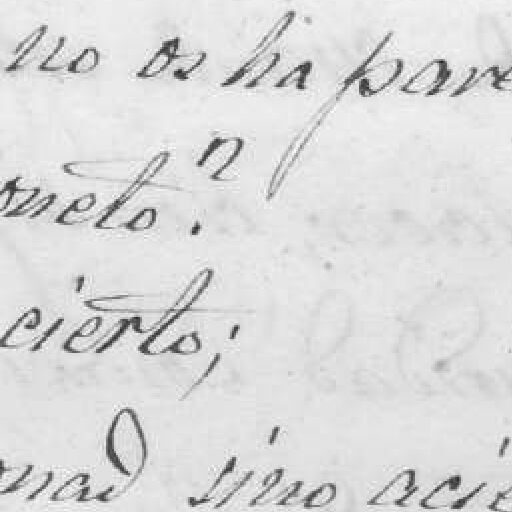 no os ha pare
oneto.
cierto;
onad sino acie